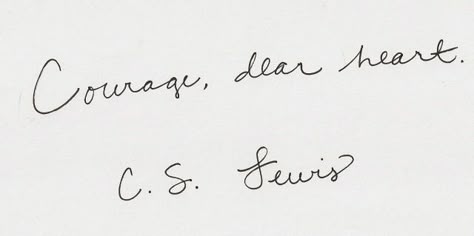 Courage, dear heart.
C. S. Lewis